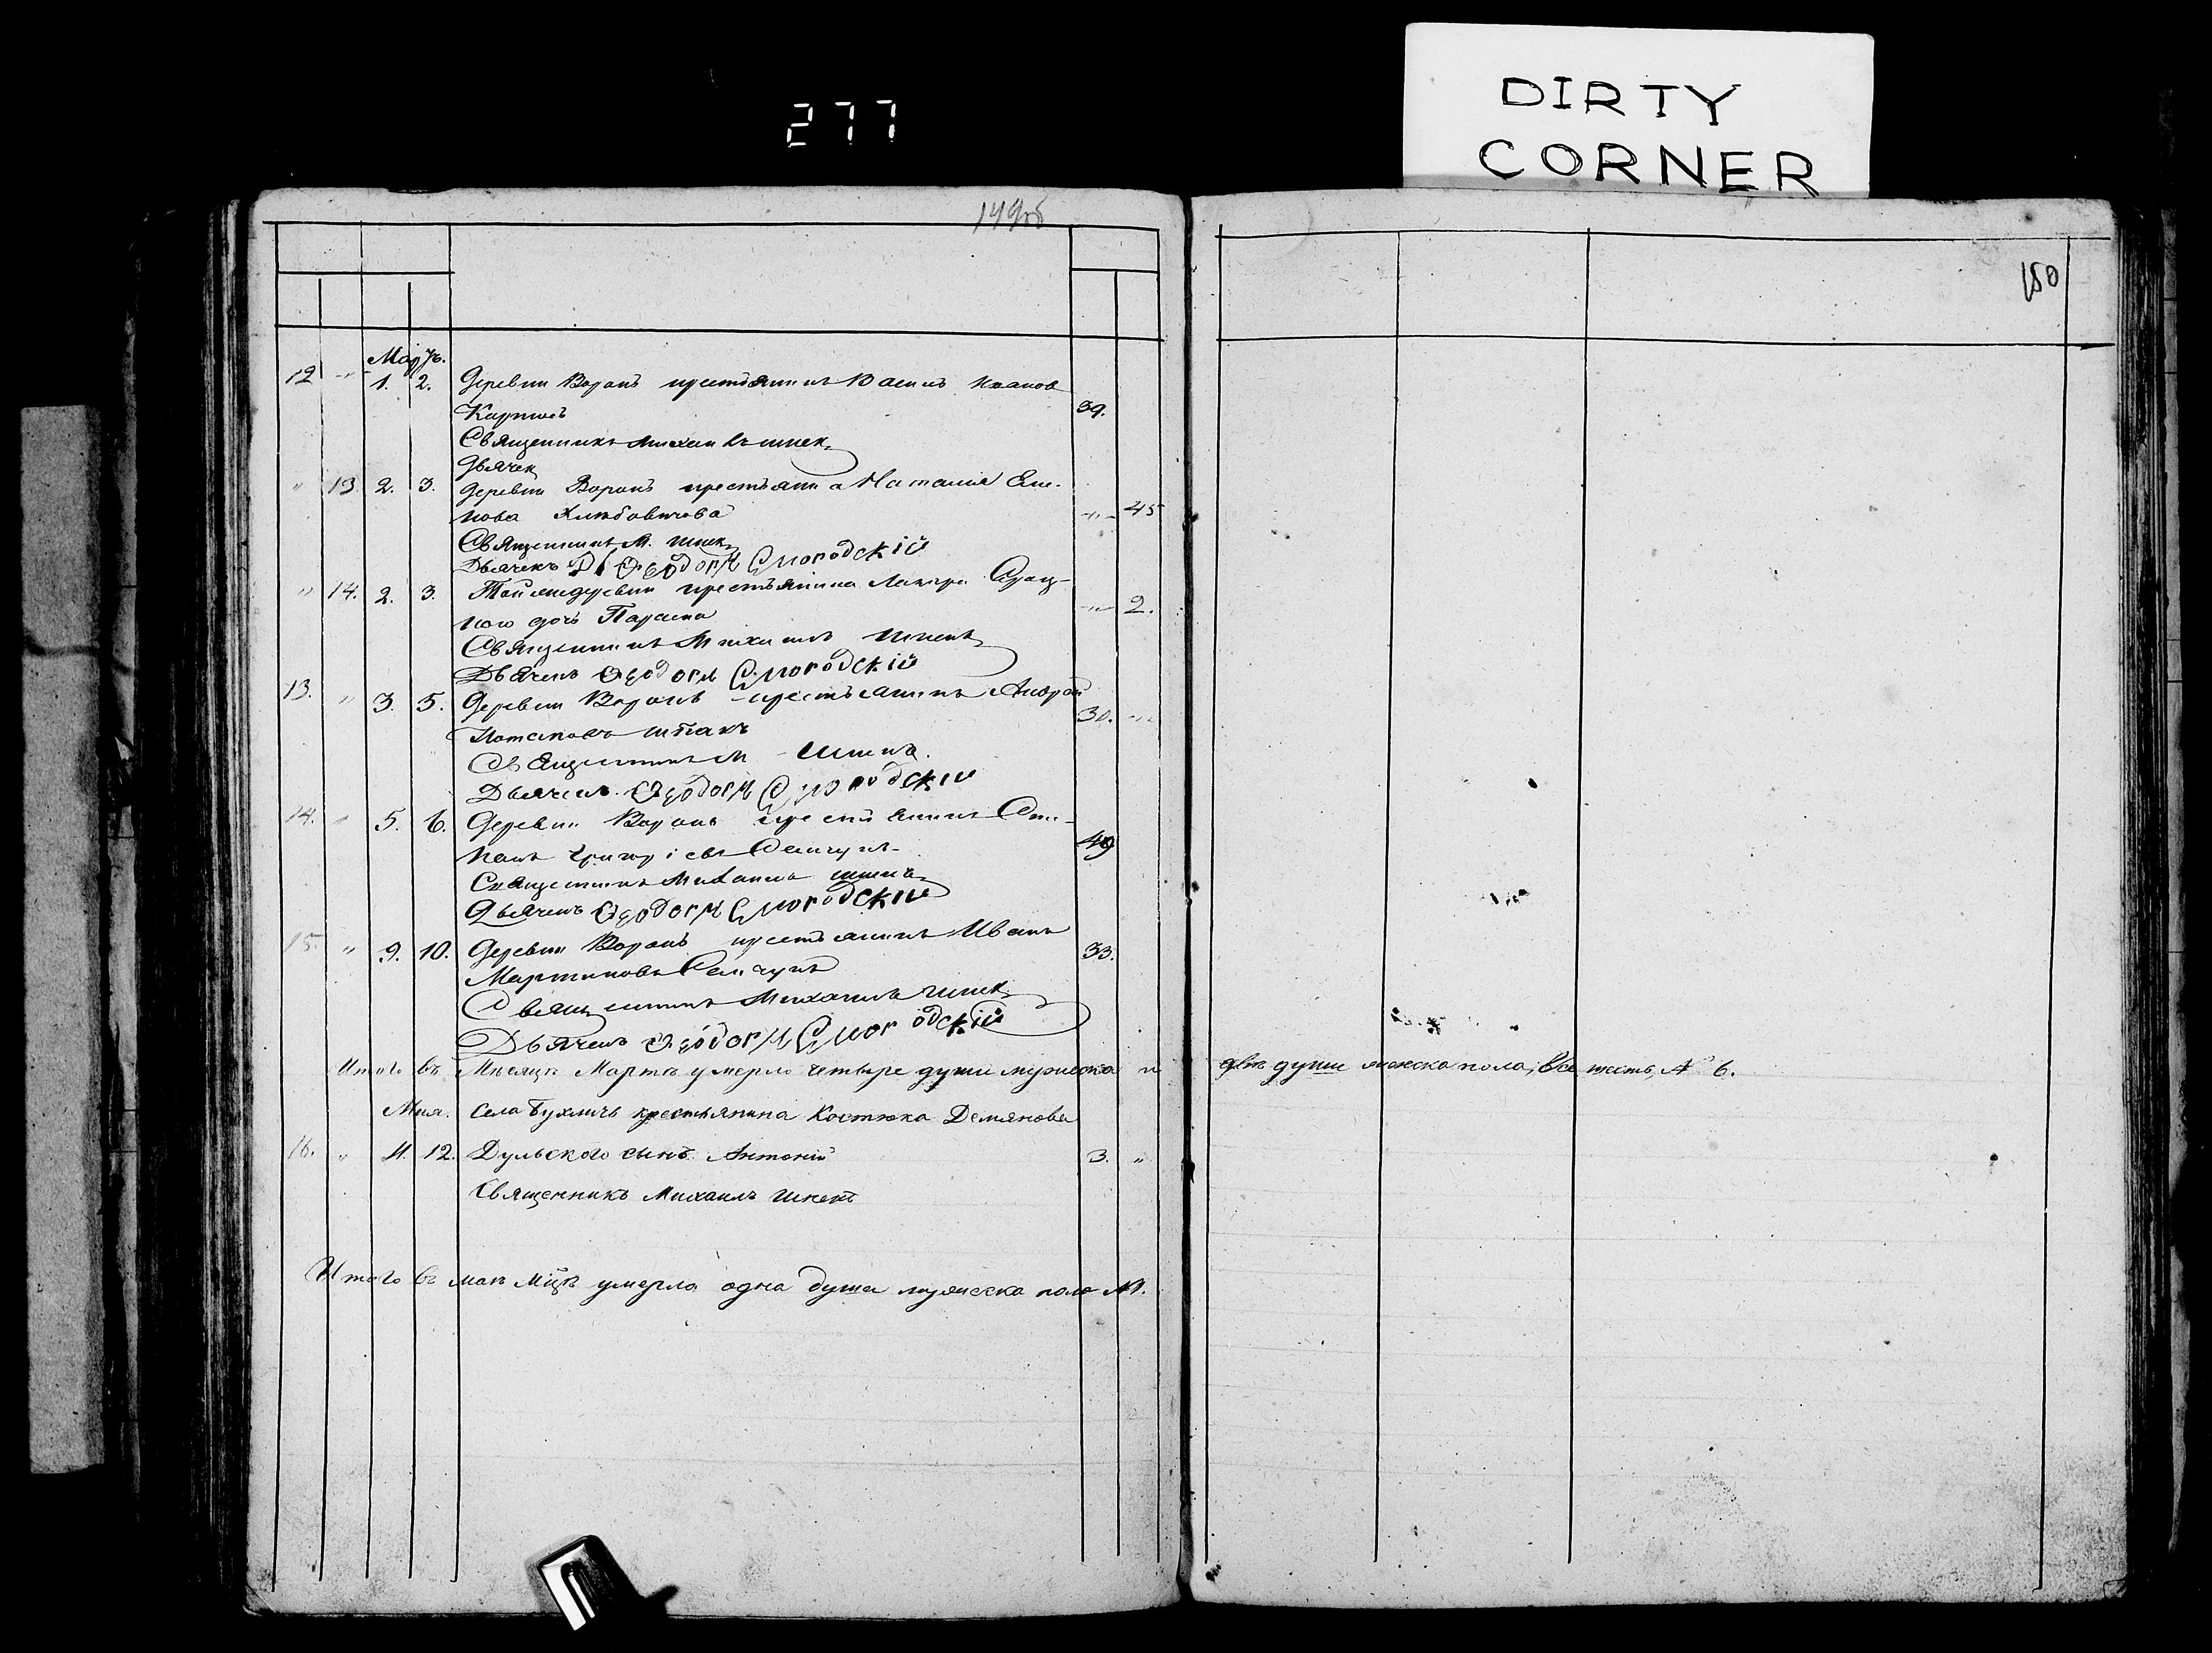 277
DIRTY
CORNER
149об
150
Мартъ.
12 " 1. 2. Деревни Воронъ крестьянинъ Василь Иванов
Карпюсь 39.
Священникъ Михаилъ Шпек
Дьячек
" 13. 2. 3. Деревни Воронъ крестьянка Наталия
нова -"- 45
Священникъ М. Шпек
Дьячекъ Ѳеодоръ Смогодскій
" 14. 2. 3. крестьянина
дочь -"- 2.
Священникъ Михаилъ Шпекъ
Дьячекъ Ѳеодоръ Смогодскій
13. " 3. 5. Деревни Воронъ крестьянинъ Андрей
Потаповъ Шпакъ 30. -"-
Священникъ М Шпекъ.
Дьячекъ. Ѳеодоръ Смогодскій
14. " 5. 6. Деревни Воронъ крестьянинъ Сте-
панъ Григоріевъ Семчукъ 49
Священникъ Михаилъ Шпекъ
Дьячекъ Ѳеодоръ Смогодскій
15. " 9. 10. Деревни Воронъ крестьянинъ Иванъ
Мартиновъ Семчукъ 33.
Священникъ Михаилъ Шпек
Дьячекъ Ѳеодоръ Смогодскій
Итого въ Мѣсяцѣ Мартѣ умерло четыре души мужеска и двѣ души женска пола, Все шесть, № 6.
Мая. Села Бухличъ крестьянина Костюка Демянова
16. " 11. 12. Дульского сынъ Антоній 3. "
Священникъ Михаилъ Шпекъ
Итого въ маѣ мцѣ умерла одна душа мужеска пола №1.